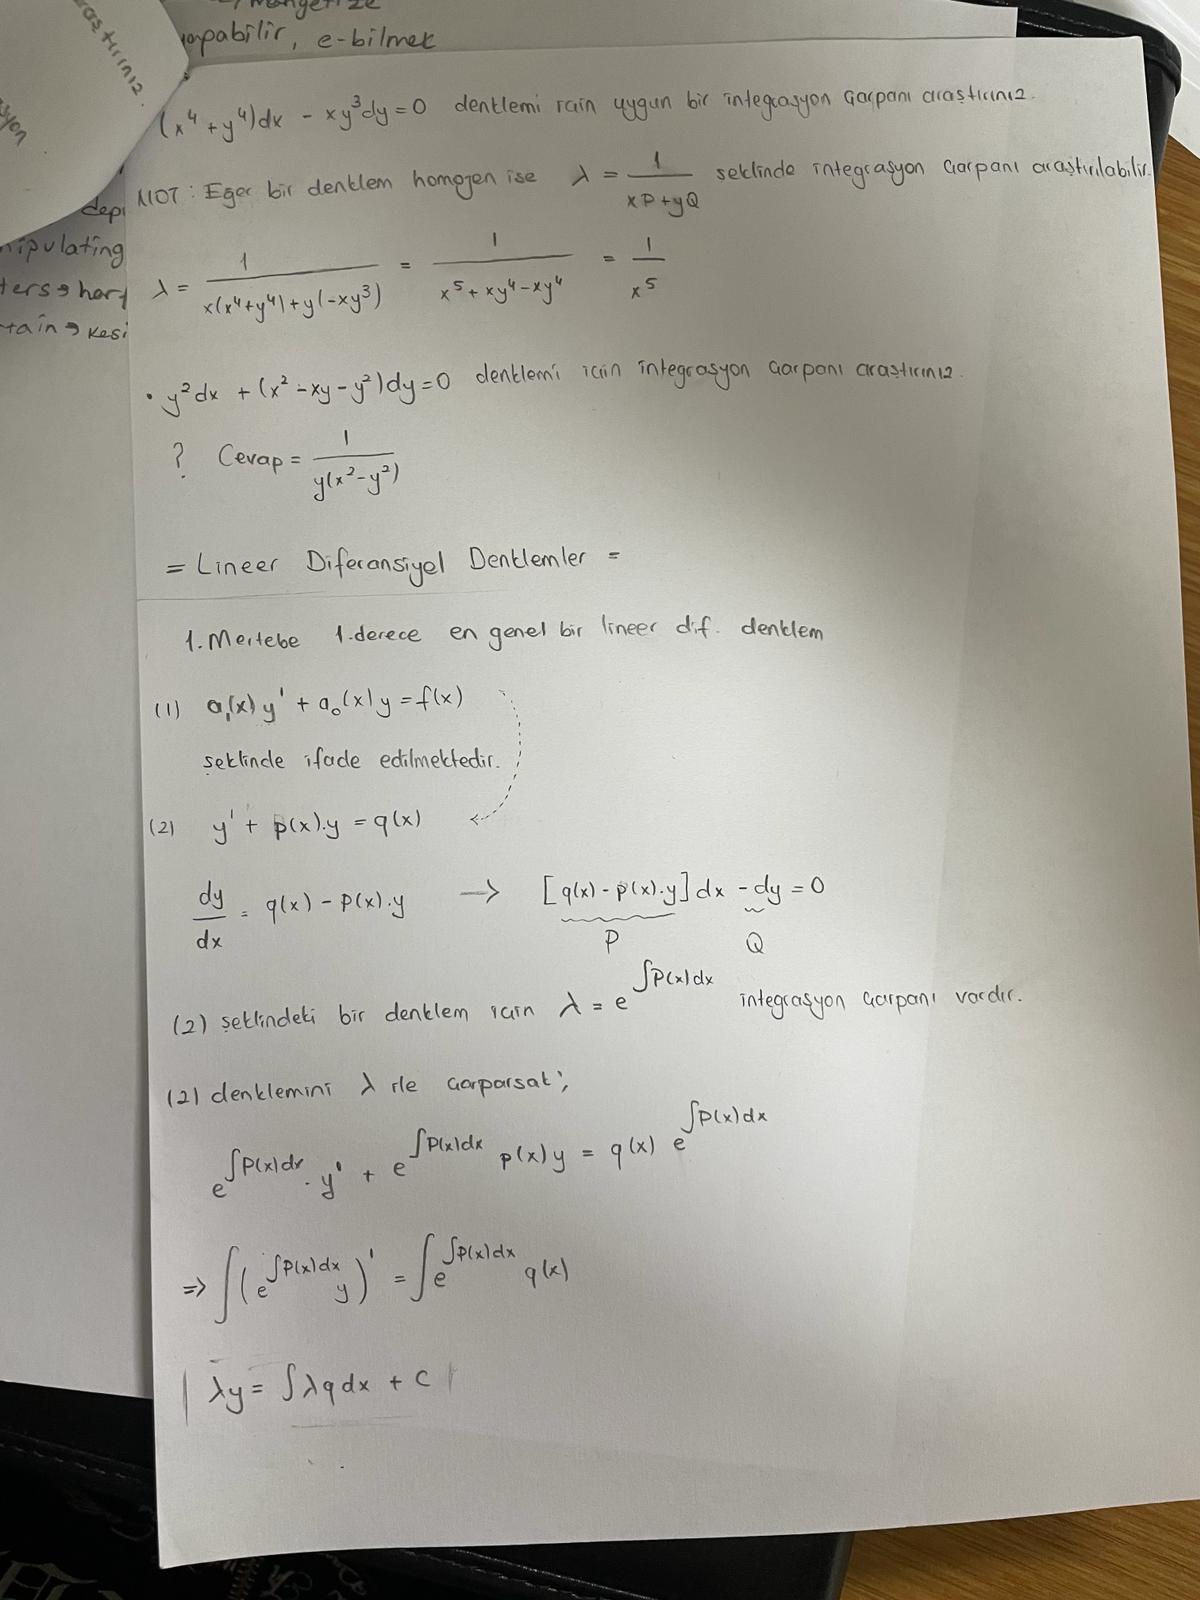 araştırınız.
syon
yapabilir, e-bilmek
(x⁴ + y⁴)dx - xy³dy = 0 denklemi için uygun bir integrasyon çarpanı araştırınız.
NOT : Eğer bir denklem homojen ise λ = 1/(xP + yQ) şeklinde integrasyon çarpanı araştırılabilir.
λ = 1/(x(x⁴+y⁴)+y(-xy³)) = 1/(x⁵+xy⁴-xy⁴) = 1/x⁵
• y²dx + (x² - xy - y²)dy = 0 denklemi için integrasyon çarpanı araştırınız.
? Cevap = 1/(y(x²-y²))
= Lineer Diferansiyel Denklemler =
1. Mertebe 1. derece en genel bir lineer dif. denklem
(1) a₁(x) y' + a₀(x) y = f(x)
şeklinde ifade edilmektedir.
(2) y' + p(x).y = q(x)
dy/dx = q(x) - p(x).y → [q(x) - p(x).y] dx - dy = 0
P Q
(2) şeklindeki bir denklem için λ = e^∫P(x)dx integrasyon çarpanı vardır.
(2) denklemini λ ile çarparsak;
e^∫P(x)dx . y' + e^∫P(x)dx p(x) y = q(x) e^∫P(x)dx
⇒ ∫(e^∫P(x)dx y)' = ∫e^∫P(x)dx q(x)
λy = ∫λq dx + C
nipulating